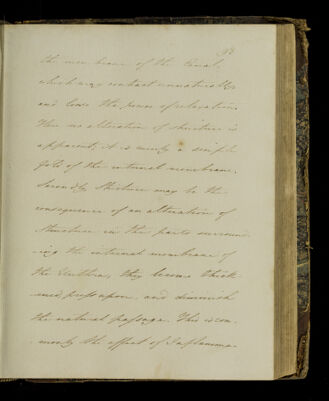 the membrane of the Canal,
which may contract unnaturally
and loose the power of relaxation.
Here no alteration of structure is
apparent; it is merely a simple
fold of the internal membrane.
Secondly Stricture may be the
consequence of an alteration of
structure in the parts surround
ing the internal membrane of
the Urethra, they become thick
ened, press upon, and diminish
the natural passage. This is com
monly the effect of Inflamma